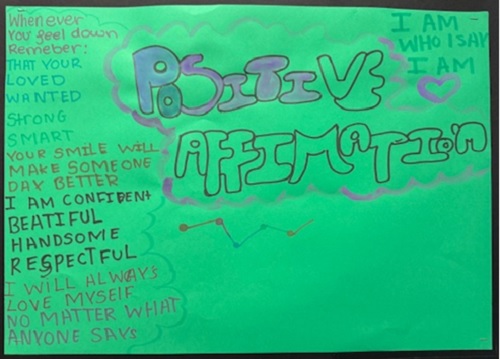 Whenever
You feel down
Remeber:
THAT YOUR
LOVED
WANTED
STRONG
SMART
YOUR SMILE WILL
MAKE SOMEONE
DAY BETTER
I AM CONFIDENT
BEATIFUL
HANDSOME
RESPECTFUL
I WILL ALWAYS
LOVE MYSELF
NO MATTER WHAT
ANYONE SAYS
POSITIVE
AFFIMATION
I AM
WHO I SAY
I AM